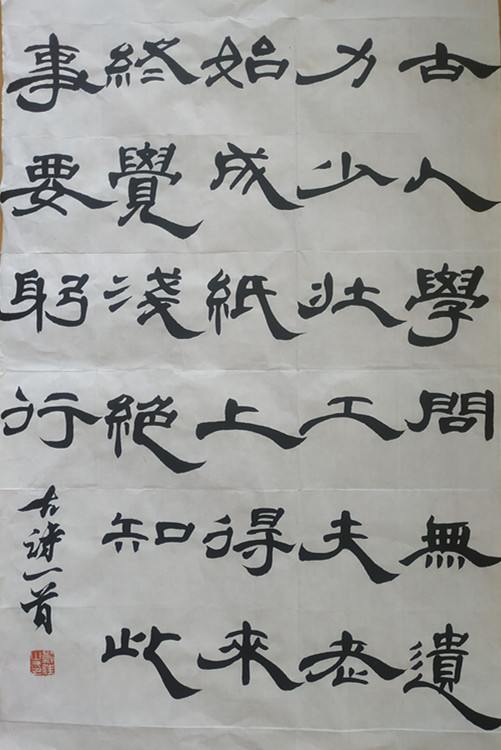 古人學問無遺
力少壯工夫老
始成紙上得來
終覺淺絕知此
事要躬行
古诗一首